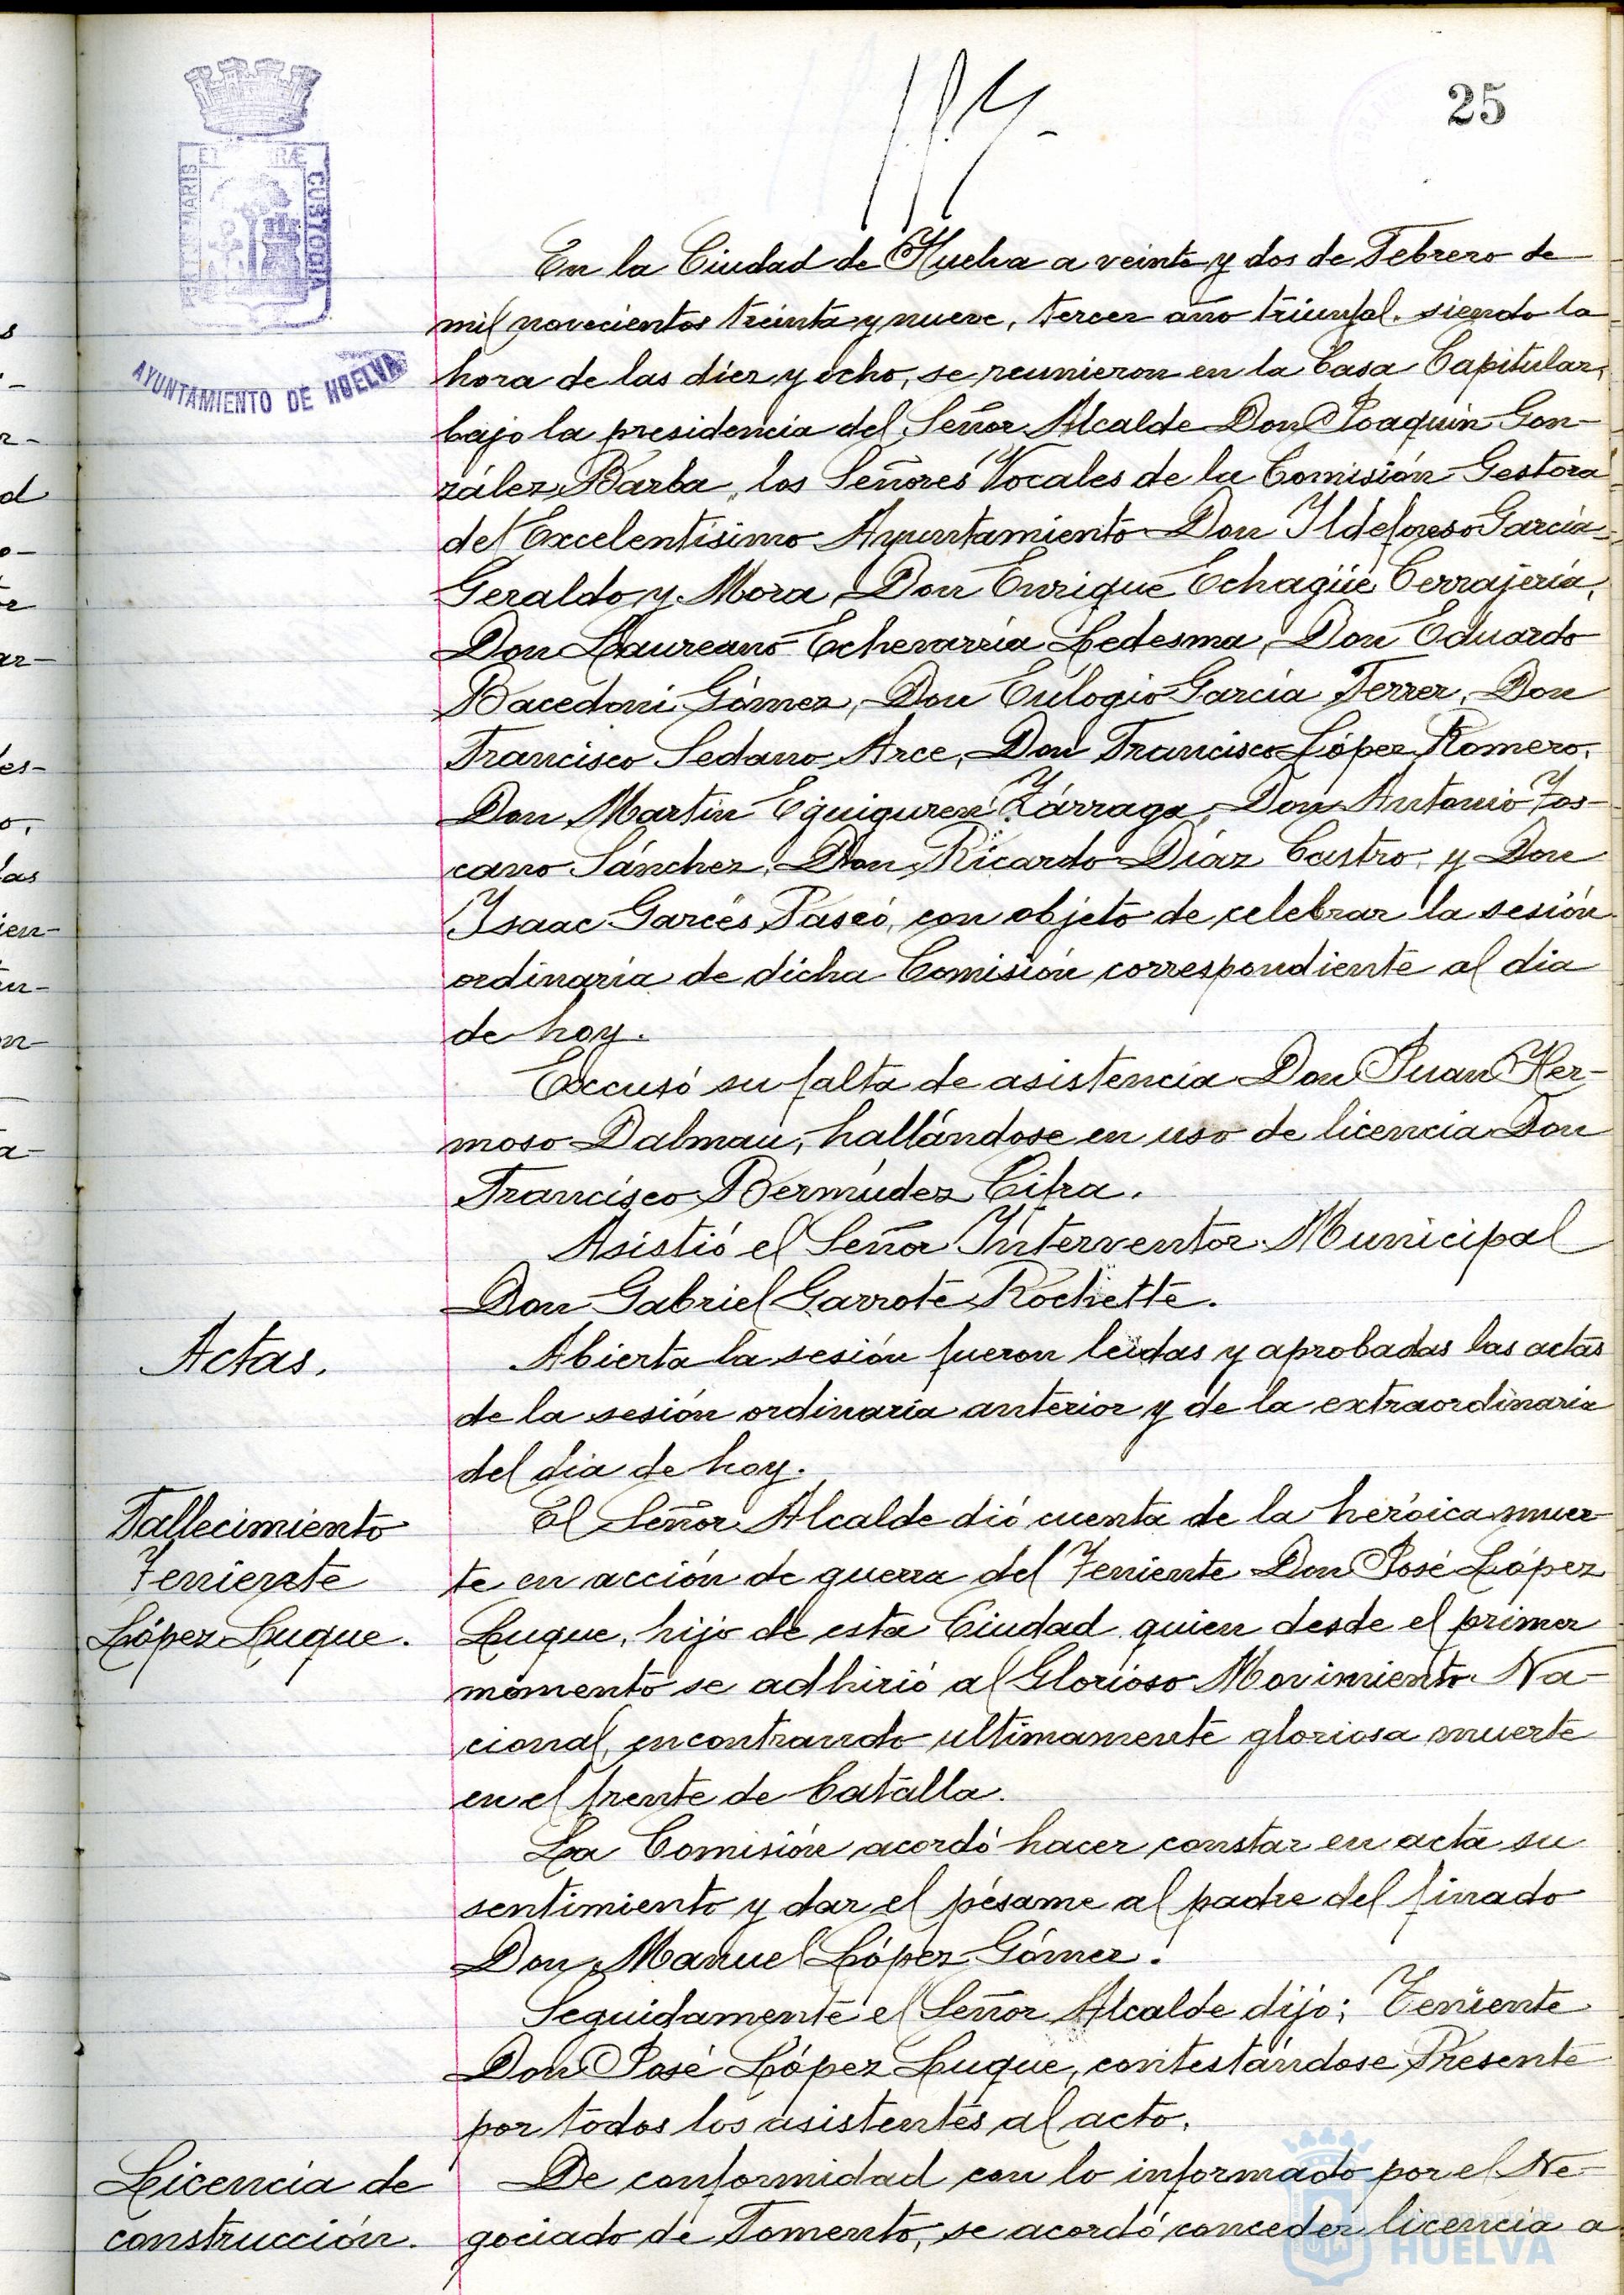 25
PORTUS MARIS ET TERRÆ CUSTODIA
AYUNTAMIENTO DE HUELVA
En la Ciudad de Huelva a veinte y dos de Febrero de
mil novecientos treinta y nueve, tercer año triunfal, siendo la
hora de las diez y ocho, se reunieron en la Casa Capitular,
bajo la presidencia del Señor Alcalde Don Joaquin Gon-
zález Barba, los Señores Vocales de la Comisión Gestora
del Excelentísimo Ayuntamiento Don Ildefonso García-
Geraldo y Mora, Don Enrique Echagüe Cerrajería,
Don Laureano Echevarría Ledesma, Don Eduardo
Bacedoni Gómez, Don Eulogio García Ferrer, Don
Francisco Sedano Arce, Don Francisco López Romero,
Don Martín Eguiguren Zárraga, Don Antonio Tos-
cano Sánchez, Don Ricardo Díaz Castro, y Don
Isaac Garcés Paseó, con objeto de celebrar la sesión
ordinaria de dicha Comisión correspondiente al dia
de hoy.
Excusó su falta de asistencia Don Juan Her-
moso Dalmau, hallándose en uso de licencia Don
Francisco Bermúdez Cifra.
Asistió el Señor Interventor Municipal
Don Gabriel Garrote Rochette.
Actas.
Abierta la sesión fueron leidas y aprobadas las actas
de la sesión ordinaria anterior y de la extraordinaria
del dia de hoy.
Fallecimiento
Teniente
López Luque.
El Señor Alcalde dió cuenta de la heróica muer-
te en acción de guerra del Teniente Don José López
Luque, hijo de esta Ciudad quien desde el primer
momento se adhirió al Glorioso Movimiento Na-
cional, encontrando ultimamente gloriosa muerte
en el frente de batalla.
La Comisión acordó hacer constar en acta su
sentimiento y dar el pésame al padre del finado
Don Manuel López Gómez.
Seguidamente el Señor Alcalde dijo; Teniente
Don José López Luque, contestándose Presente
por todos los asistentes al acto.
Licencia de
construcción.
De conformidad con lo informado por el Ne-
gociado de Fomento, se acordó conceder licencia a
HUELVA